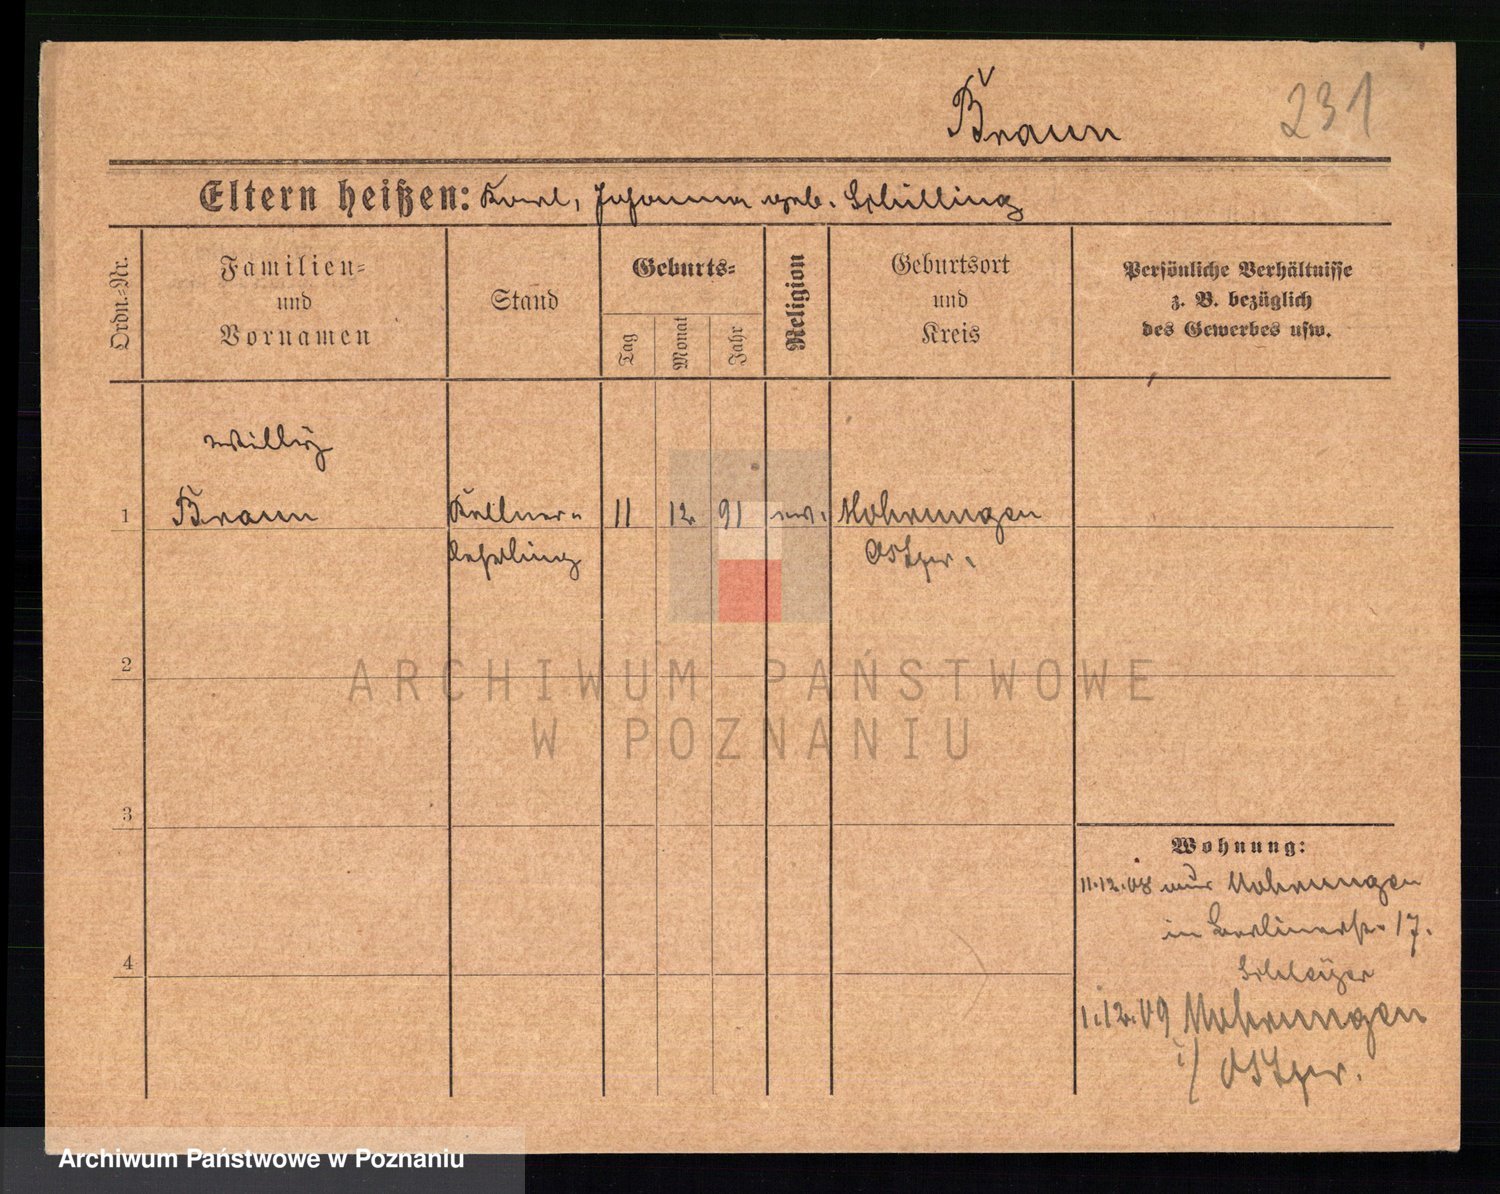 Braun
231
Eltern heißen: Karl, Johanna geb. Schilling
Ordn.-Nr.
Familien-
und
Vornamen
Stand
Geburts-
Tag
Monat
Jahr
Religion
Geburtsort
und
Kreis
Persönliche Verhältnisse
z. B. bezüglich
des Gewerbes usw.
Willÿ
1 Braun Kellner- 11 12 91 ev. Mohrungen
lehrling Ostpr.
2
3
4
Wohnung:
11.12.08 aus Mohrungen
in Berlinerstr. 17.
1.12.09 Mohrungen
i/ Ostpr.
ARCHIWUM PAŃSTWOWE
W POZNANIU
Archiwum Państwowe w Poznaniu